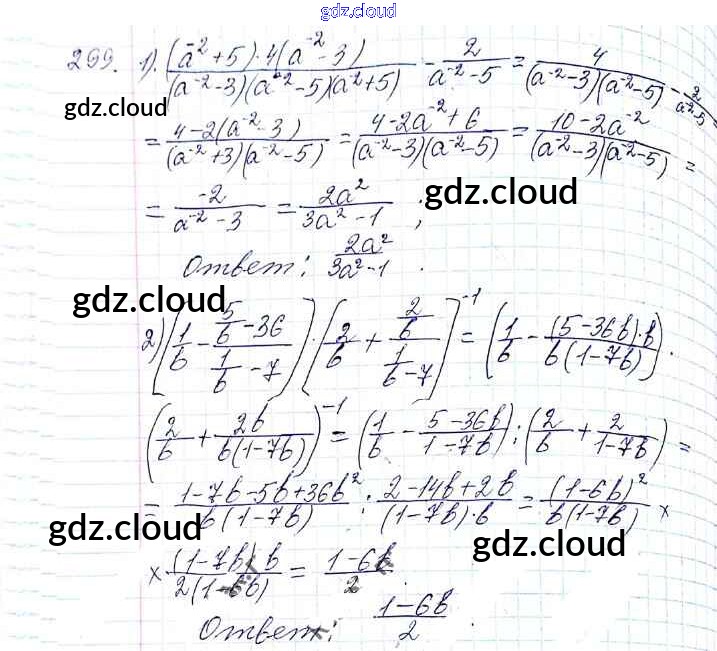 gdz.cloud
299. 1). ((a⁻²+5)·4(a⁻²-3))/((a⁻²-3)(a⁻²-5)(a⁻²+5)) - 2/(a⁻²-5) = 4/((a⁻²-3)(a⁻²-5)) - 2/(a⁻²-5) =
gdz.cloud
= (4-2(a⁻²-3))/((a⁻²+3)(a⁻²-5)) = (4-2a⁻²+6)/((a⁻²-3)(a⁻²-5)) = (10-2a⁻²)/((a⁻²-3)(a⁻²-5)) =
= -2/(a⁻²-3) = 2a²/(3a²-1) ;
gdz.cloud
Ответ: 2a²/(3a²-1) .
gdz.cloud
2) [1/b - (5/b-36)/(1/b-7)] · [2/b + (2/b)/(1/b-7)]⁻¹ = (1/b - ((5-36b)·b)/(b(1-7b))) ·
(2/b + 2b/(b(1-7b)))⁻¹ = (1/b - (5-36b)/(1-7b)) : (2/b + 2/(1-7b)) =
= (1-7b-5b+36b²)/(b(1-7b)) : (2-14b+2b)/((1-7b)·b) = (1-6b)²/(b(1-7b)) ×
gdz.cloud
× ((1-7b)b)/(2(1-6b)) = (1-6b)/2 .
gdz.cloud
Ответ: (1-6b)/2 .